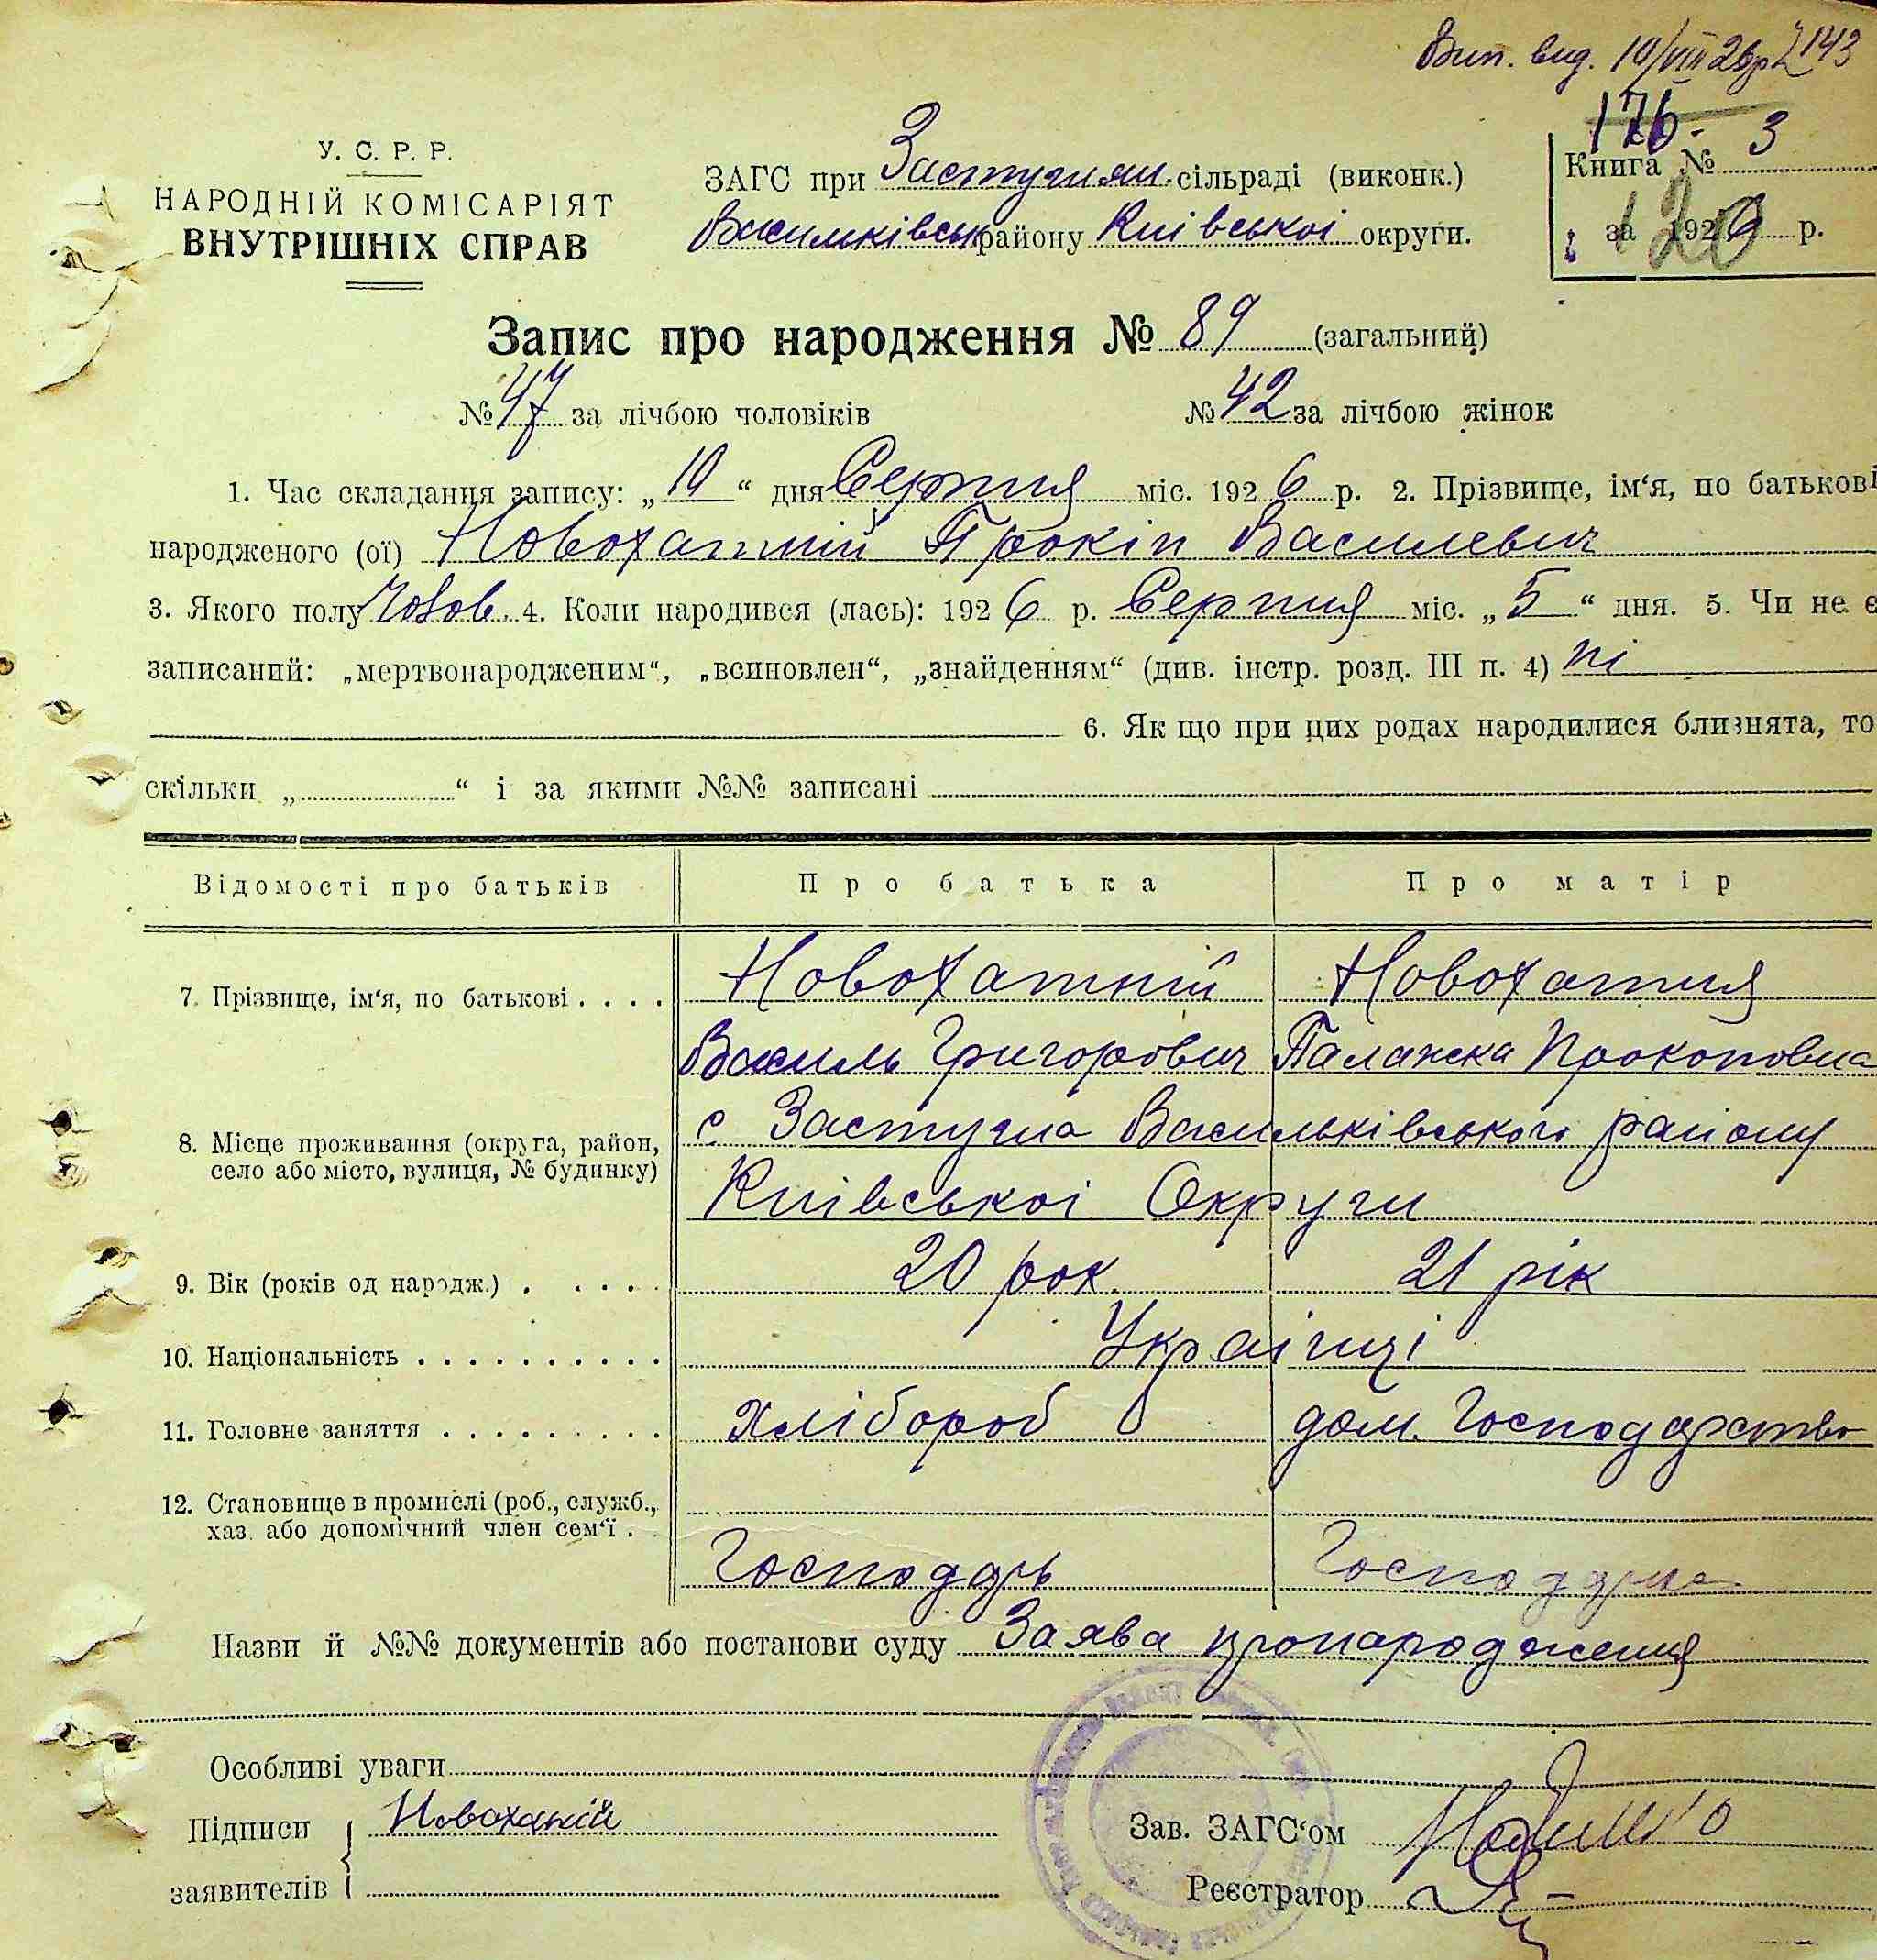 Вип. вид. 10/VIII 26р 143
176 - 3
У. С. Р. Р.
НАРОДНІЙ КОМІСАРІЯТ
ВНУТРІШНІХ СПРАВ
ЗАГС при Застугнян. сільраді (виконк.)
Васильківськ району Київської округи.
Книга №
за 1926 р.
120
Запис про народження № 89 (загальний)
№ 47 за лічбою чоловіків № 42 за лічбою жінок
1. Час складання запису: „10“ дня Серпня міс. 1926 р. 2. Прізвище, ім‘я, по батькові
народженого (ої) Новохатній Прокіп Василевич
3. Якого полу Чолов. 4. Коли народився (лась): 1926 р. Серпня міс. „5“ дня. 5. Чи не є
записаний: „мертвонародженим“, „всиновлен“, „знайденням“ (див. інстр. розд. III п. 4) ні
6. Як що при цих родах народилися близнята, то
скільки „ “ і за якими №№ записані
Відомості про батьків Про батька Про матір
7. Прізвище, ім‘я, по батькові . . . . Новохатній Новохатня
Василь Григорович Палажка Прокоповна
8. Місце проживання (округа, район, село або місто, вулиця, № будинку) с Застугна Васильківського району
Київської Округи
9. Вік (років од народж.) . . . . . 20 рок. 21 рік
10. Національність . . . . . . . . . . . Українці
11. Головне заняття . . . . . . . . . . Хлібороб дом. Господарство
12. Становище в промислі (роб., служб.,
хаз. або допомічний член сем‘ї . .
Господарь Господарка
Назви й №№ документів або постанови суду Заява пронародження
Особливі уваги
Підписи Новохатній Зав. ЗАГС‘ом
заявителів Реєстратор